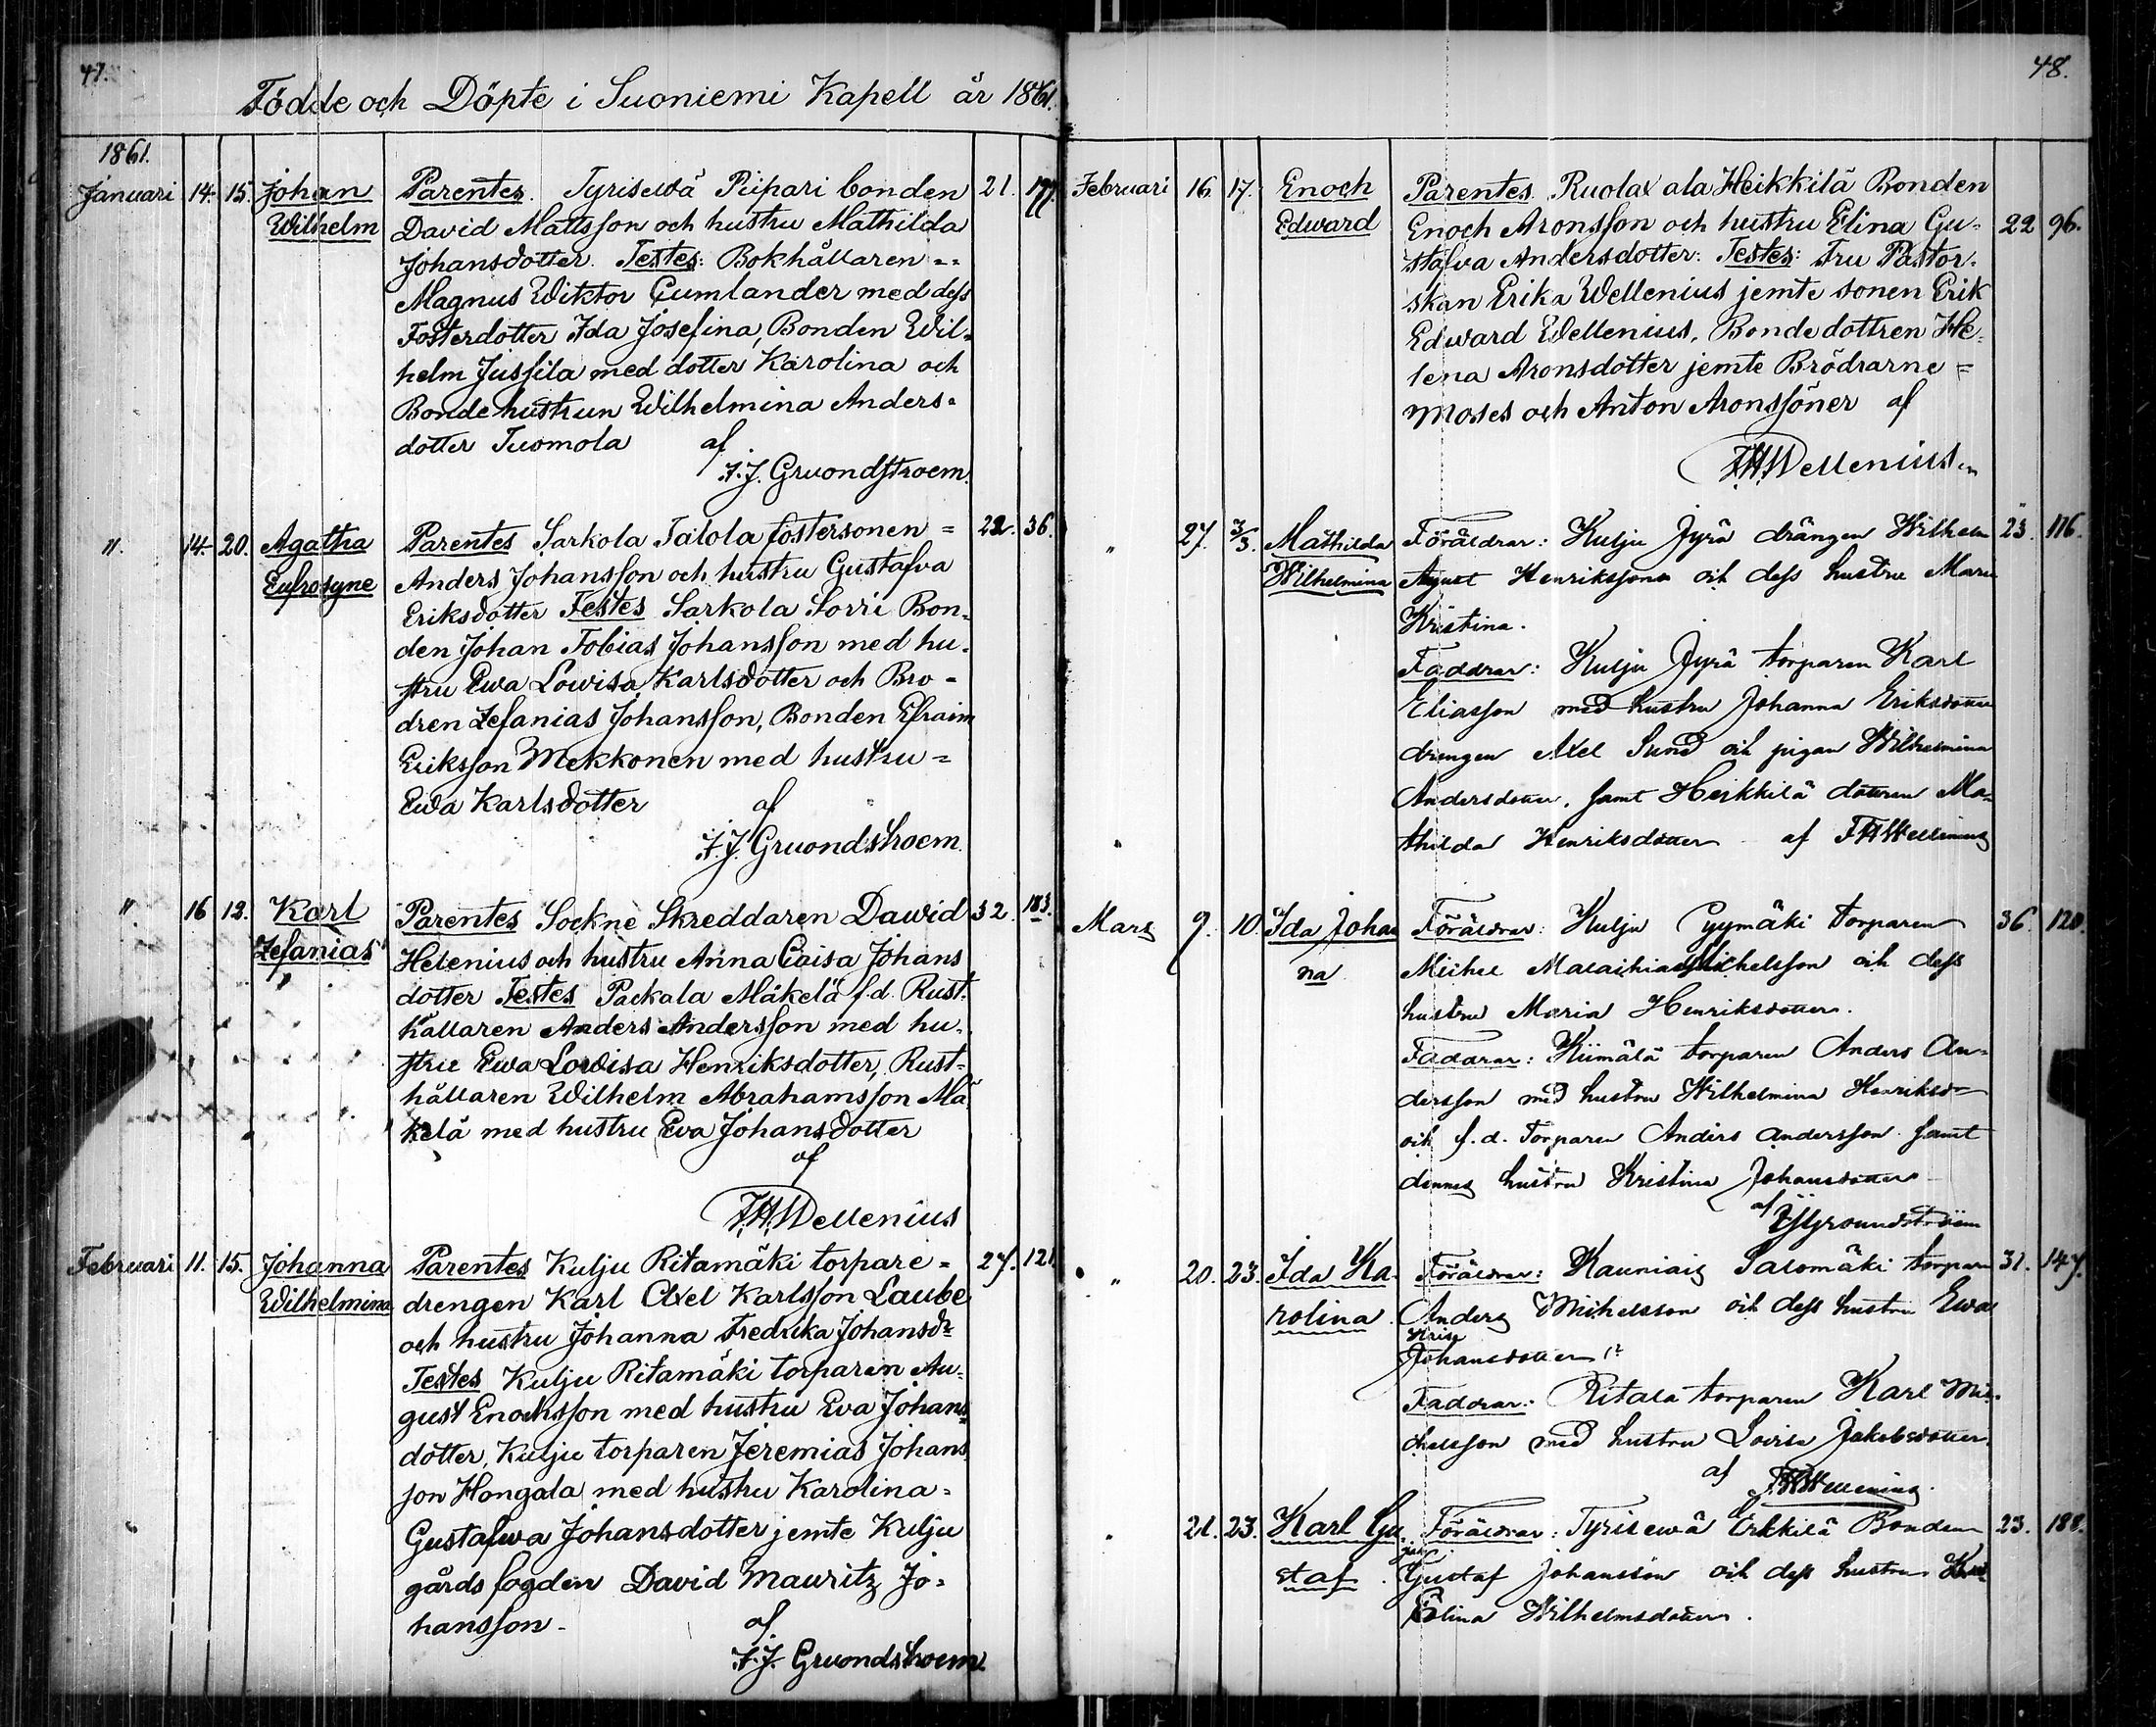 47.
Födde och Döpte i Suoniemi Kapell år 1861.
1861.
Januari 14. 15. Johan Parentes. Tyrisewä Piipari bonden 21. 177.
Wilhelm David Mattsson och hustru Mathilda
Johansdotter. Testes: Bokhållaren =
Magnus Wiktor Gumlander med dess
Fosterdotter Ida Josefina, Bonden Wil-
helm Jussila med dotter Karolina och
Bondehustrun Wilhelmina Anders-
dotter Tuomola af
F.J. Gruondstroem.
" 14. 20. Agatha Parentes Sarkola Talola fostersonen = 22. 36.
Eufrosyne Anders Johansson och hustru Gustafva
Eriksdotter Testes Sarkola Sorri Bon-
den Johan Tobias Johansson med hu-
stru Ewa Lowisa Karlsdotter och Bro-
dren Zefanias Johansson, Bonden Efraim
Eriksson Mekkonen med hustru =
Ewa Karlsdotter af
F.J. Gruondstroem.
" 16 12. Karl Parentes Sockne Skreddaren Dawid 32. 183.
Zefanias Helenius och hustru Anna Caisa Johans
dotter Testes Packala Mäkelä f.d. Rust-
hållaren Anders Andersson med hu-
stru Ewa Lowisa Henriksdotter, Rust-
hållaren Wilhelm Abrahamsson Mä
kelä med hustru Eva Johansdotter
af
F.H. Wellenius
Februari 11. 15. Johanna Parentes Kulju Ritamäki torpare = 27. 121.
Wilhelmina drengen Karl Axel Karlsson Laube
och hustru Johanna Fredrika Johansdr
Testes Kulju Ritamäki torparen Au-
gust Enochsson med hustru Eva Johans-
dotter, Kulju torparen Jeremias Johans
son Hongala med hustru Karolina =
Gustafwa Johansdotter jemte Kulju
gårds fogden David Mauritz Jo-
hansson. af
F.J. Gruondstroem.
48.
Februari 16. 17. Enoch Parentes. Ruolax ala Heikkilä Bonden
Edward Enoch Aronsson och hustru Elina Gu- 22 96.
stafva Andersdotter: Testes: Fru Pastor-
skan Erika Wellenius jemte sonen Erik
Edward Wellenius, Bondedottren He-
lena Aronsdotter jemte Brödrarne =
Moses och Anton Aronssöner af
F.H. Wellenius
" 27. 3/3. Mathilda Föräldrar: Kulju Jyrä drängen Wilhelm 23. 116.
Wilhelmina August Henriksson och dess hustru Maria
Kristina.
Faddrar: Kulju Jyrä torparen Karl
Eliasson med hustru Johanna Eriksdotter
drengen Axel Sund och pigan Wilhelmina
Andersdotter, samt Heikkilä dottren Ma-
thilda Henriksdotter af F.H. Wellenius
Mars 9. 10. Ida Johan Föräldrar: Kulju Pyymäki torparen 36. 120.
na Michel Malachias Michelsson och dess
hustru Maria Henriksdotter.
Faddrar: Kiimälä torparen Anders An-
dersson med hustru Wilhelmina Henriksdr
och f.d. Torparen Anders Andersson samt
dennes hustru Kristina Johansdotter
af F.J. Gruondström
" 20. 23. Ida Ka- Föräldrar: Kauniais Salomäki torparen 31. 147.
rolina. Anders Michelsson och dess hustru Ewa
Kris
Johansdotter.
Faddrar: Ritala torparen Karl Mi-
chelsson med hustru Lovisa Jakobsdotter
af F.H. Wellenius.
" 21. 23. Karl Gu- Föräldrar: Tyrisewä Erkkilä Bonden 23. 188.
staf. Gustaf Johansson och dess hustru
Wilhelmsdotter.